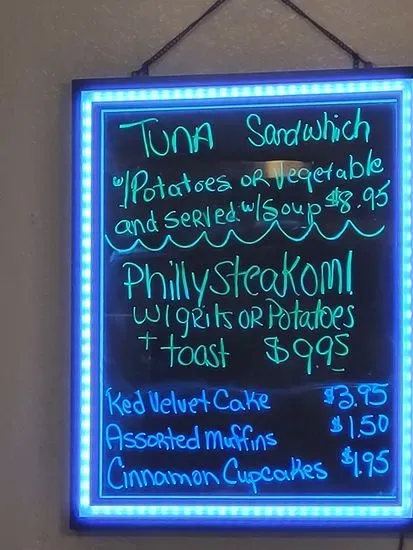 Tuna Sandwhich
w/Potatoes or Vegetable
and served w/Soup $8.95
Philly Steak Oml
w/grits or Potatoes
+ toast $9.95
Red Velvet Cake $3.95
Assorted Muffins $1.50
Cinnamon Cupcakes $1.95